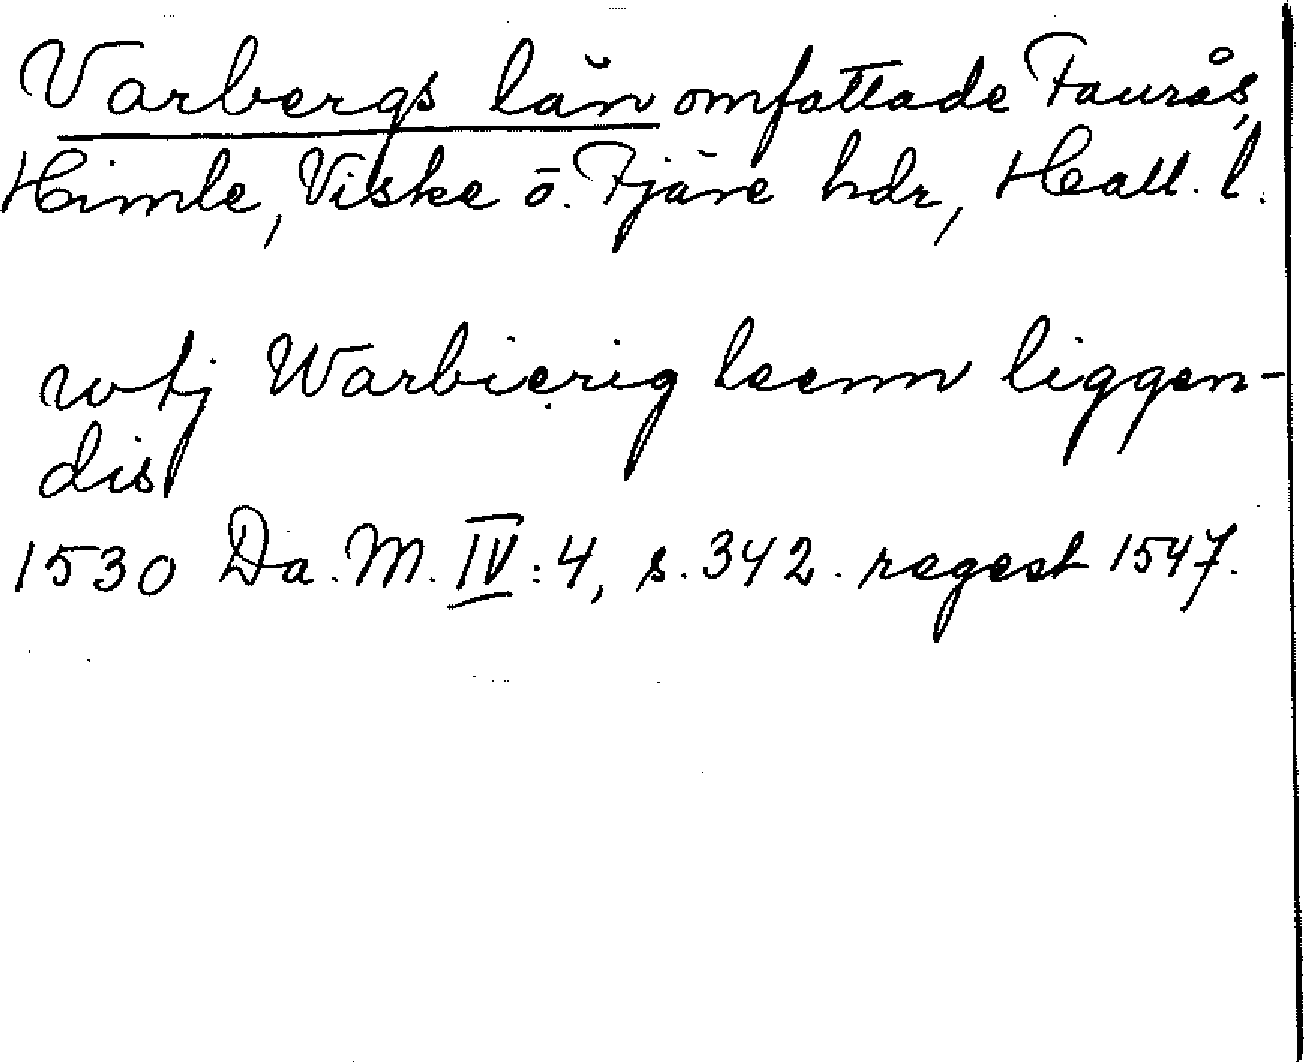 Varbergs län omfattade Faurås,
Himle, Viske ö. Fjäre hdr, Hall. l.
wtj Warbierig leenn liggen-
dis
1530 Da. M. IV:4, s. 342. regest 1547.